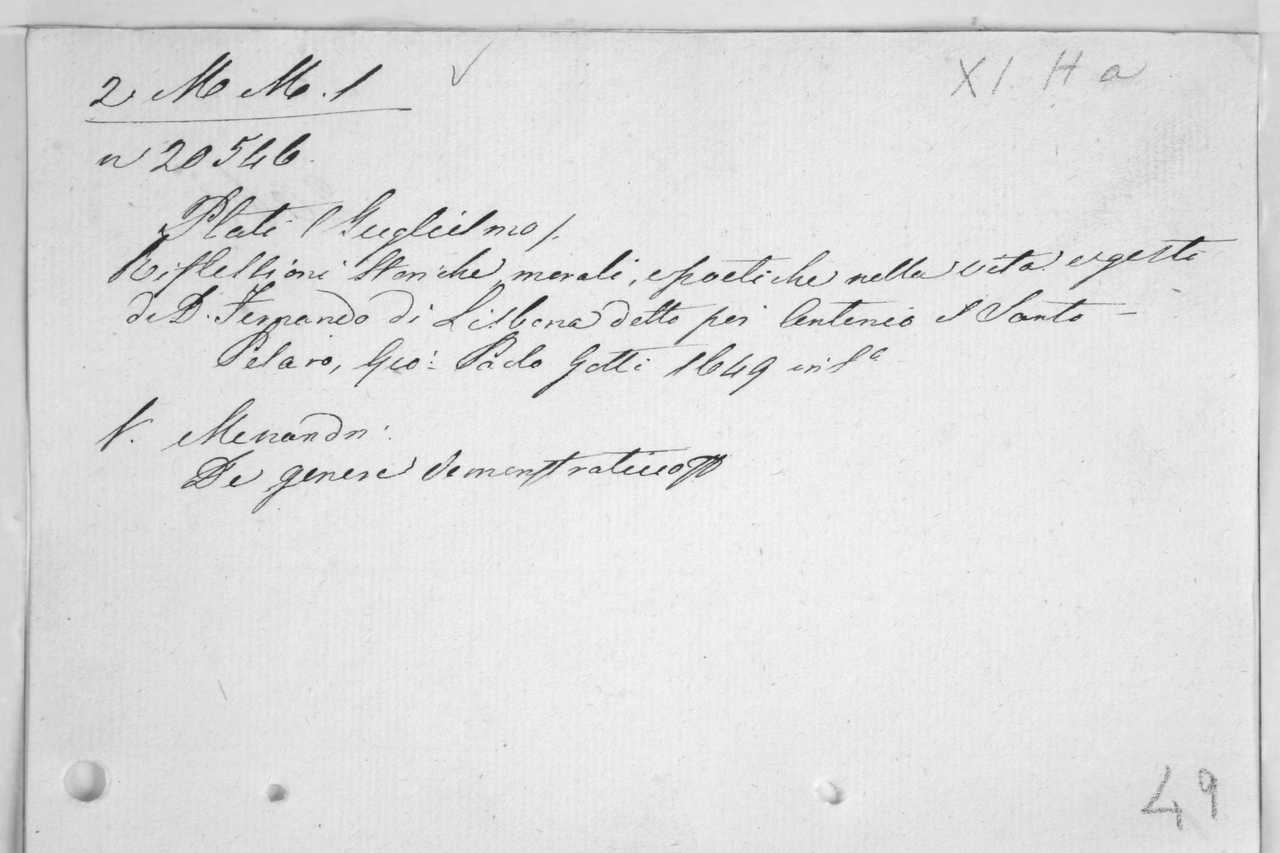 2 M M. 1
XI. H a
n 20546.
Plati (Guglielmo).
Riflessioni Storiche, morali, e poetiche nella vita e gesti
di D. Fernando di Lisbona detto poi Antonio il Santo –
Pesaro, Gio: Paolo Gotti 1649 in
V. Menandri.
De genere demonstrativo
49